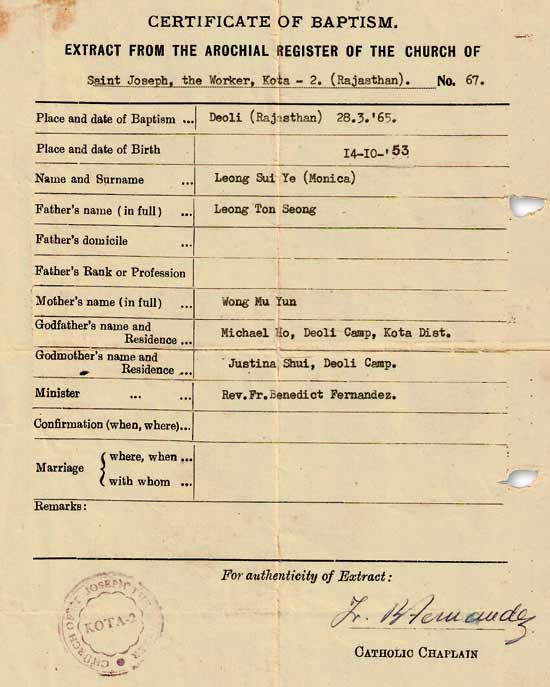 CERTIFICATE OF BAPTISM.
EXTRACT FROM THE AROCHIAL REGISTER OF THE CHURCH OF
Saint Joseph, the Worker, Kota - 2. (Rajasthan). No. 67.
Place and date of Baptism ... Deoli (Rajasthan) 28.3.'65.
Place and date of Birth 14-10-'53
Name and Surname ... Leong Sui Ye (Monica)
Father's name (in full) ... Leong Ton Seong
Father's domicile ...
Father's Rank or Profession
Mother's name (in full) ... Wong Mu Yun
Godfather's name and
Residence ... Michael Ho, Deoli Camp, Kota Dist.
Godmother's name and
Residence ... Justina Shui, Deoli Camp.
Minister ... ... Rev.Fr.Benedict Fernandez.
Confirmation (when, where)...
Marriage
where, when ...
with whom ...
Remarks:
For authenticity of Extract:
Fr. B Fernandez
CATHOLIC CHAPLAIN
CHURCH OF ST. JOSEPH
KOTA-2